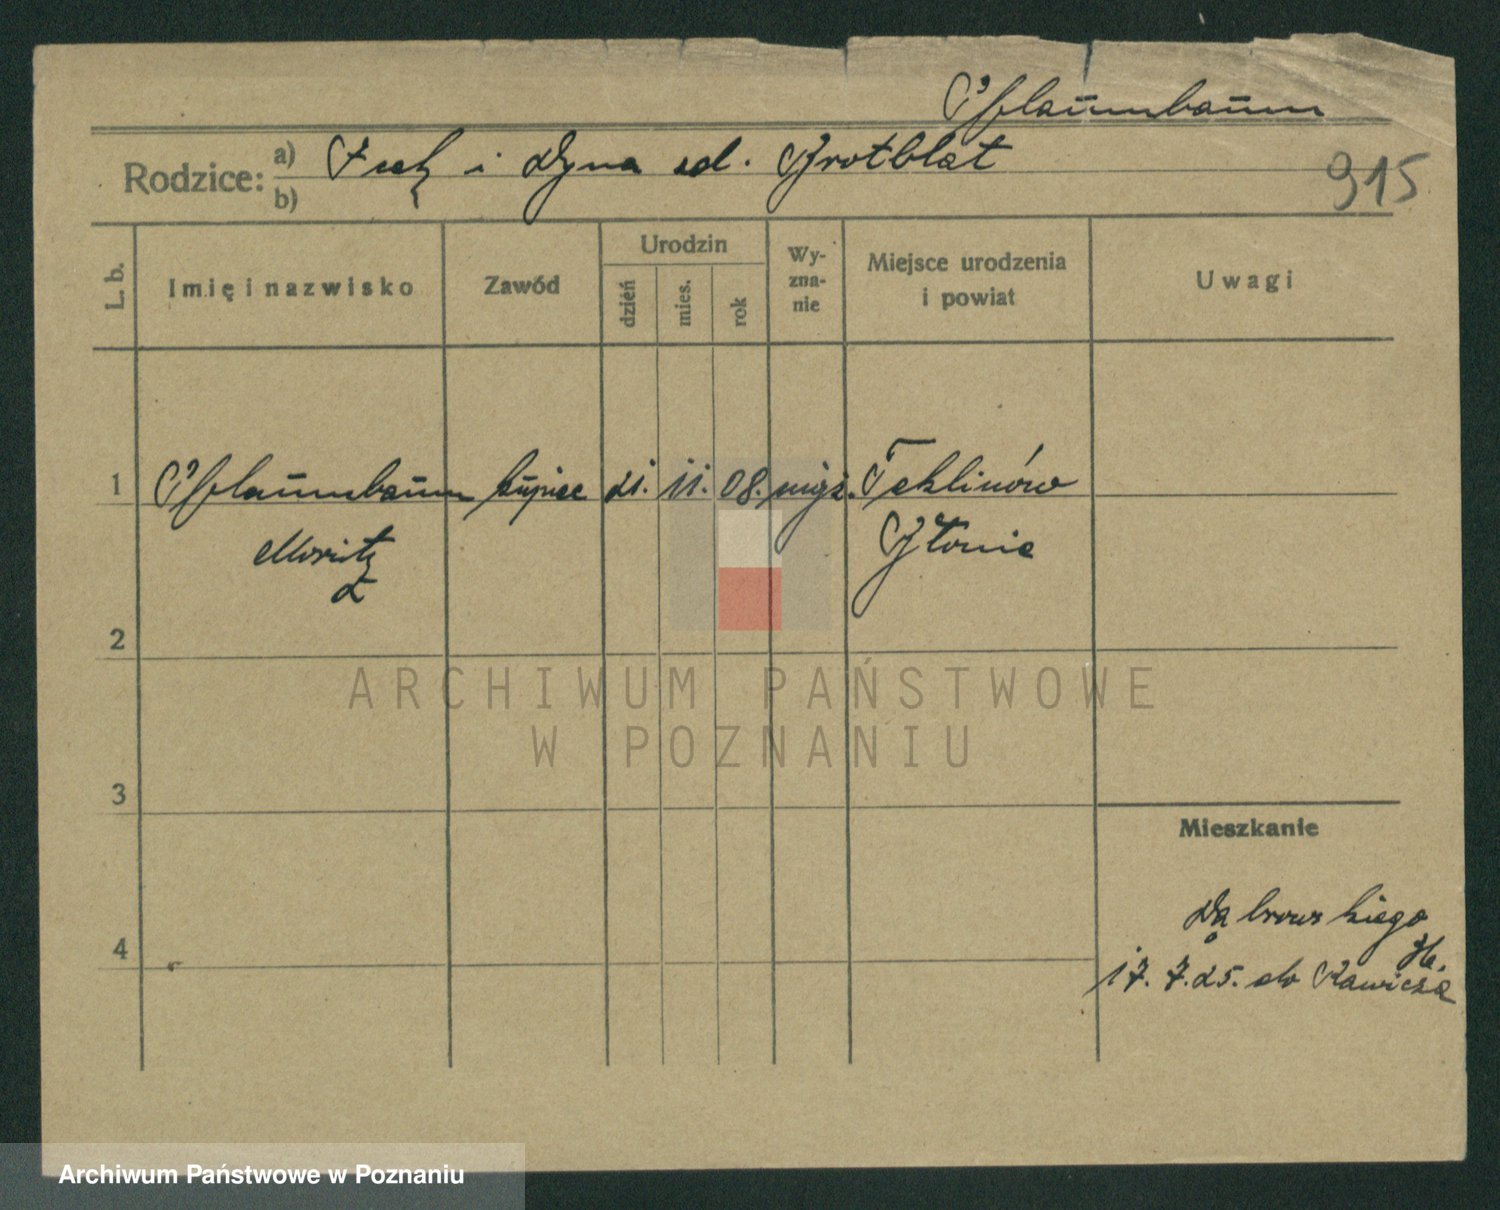 Pflaumbaum
Rodzice: a) i Dyna zd. Grotblat
b)
915
L. b.
Imię i nazwisko
Zawód
Urodzin
dzień
mies.
rok
Wy-
zna-
nie
Miejsce urodzenia
i powiat
Uwagi
1 Pflaumbaum kupiec 21. 11. 08. mojż. Teklinów
Moritz Błonie
2
3
4
Mieszkanie
Dąbrowskiego
17. 7. 25. do Rawicza
ARCHIWUM PAŃSTWOWE
W POZNANIU
Archiwum Państwowe w Poznaniu